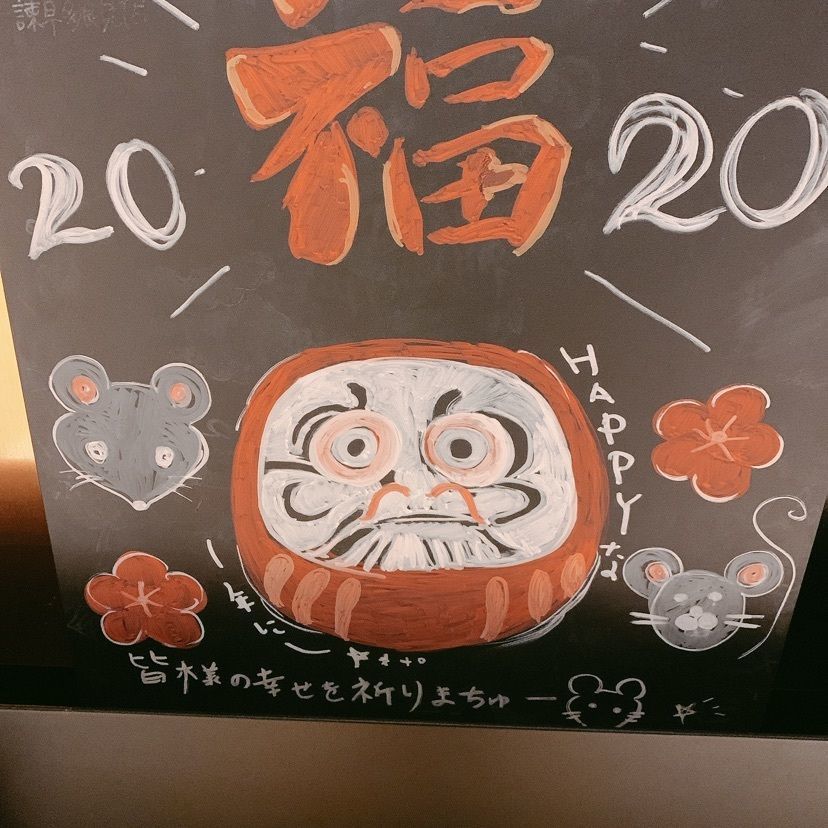 福
20 20
HAPPYな
一年に
皆様の幸せを祈りまちゅー